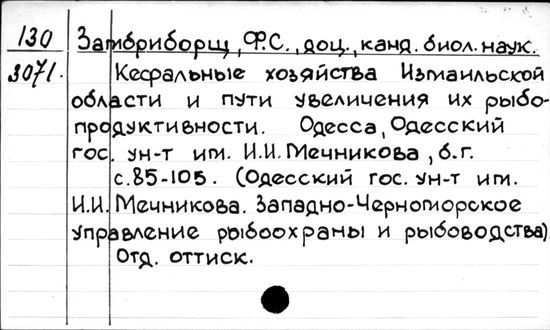 130 Замбриборщ, Ф.С., доц., канд. биол. наук.
3071. Кефральные хозяйства Измаильской
области и пути увеличения их рыбо-
продуктивности. Одесса, Одесский
гос. ун-т им. И.И. Мечникова, б.г.
с.85-105. (Одесский гос. ун-т им.
И.И. Мечникова. Западно-Черноморское
управление рыбоохраны и рыбоводства)
Отд. оттиск.